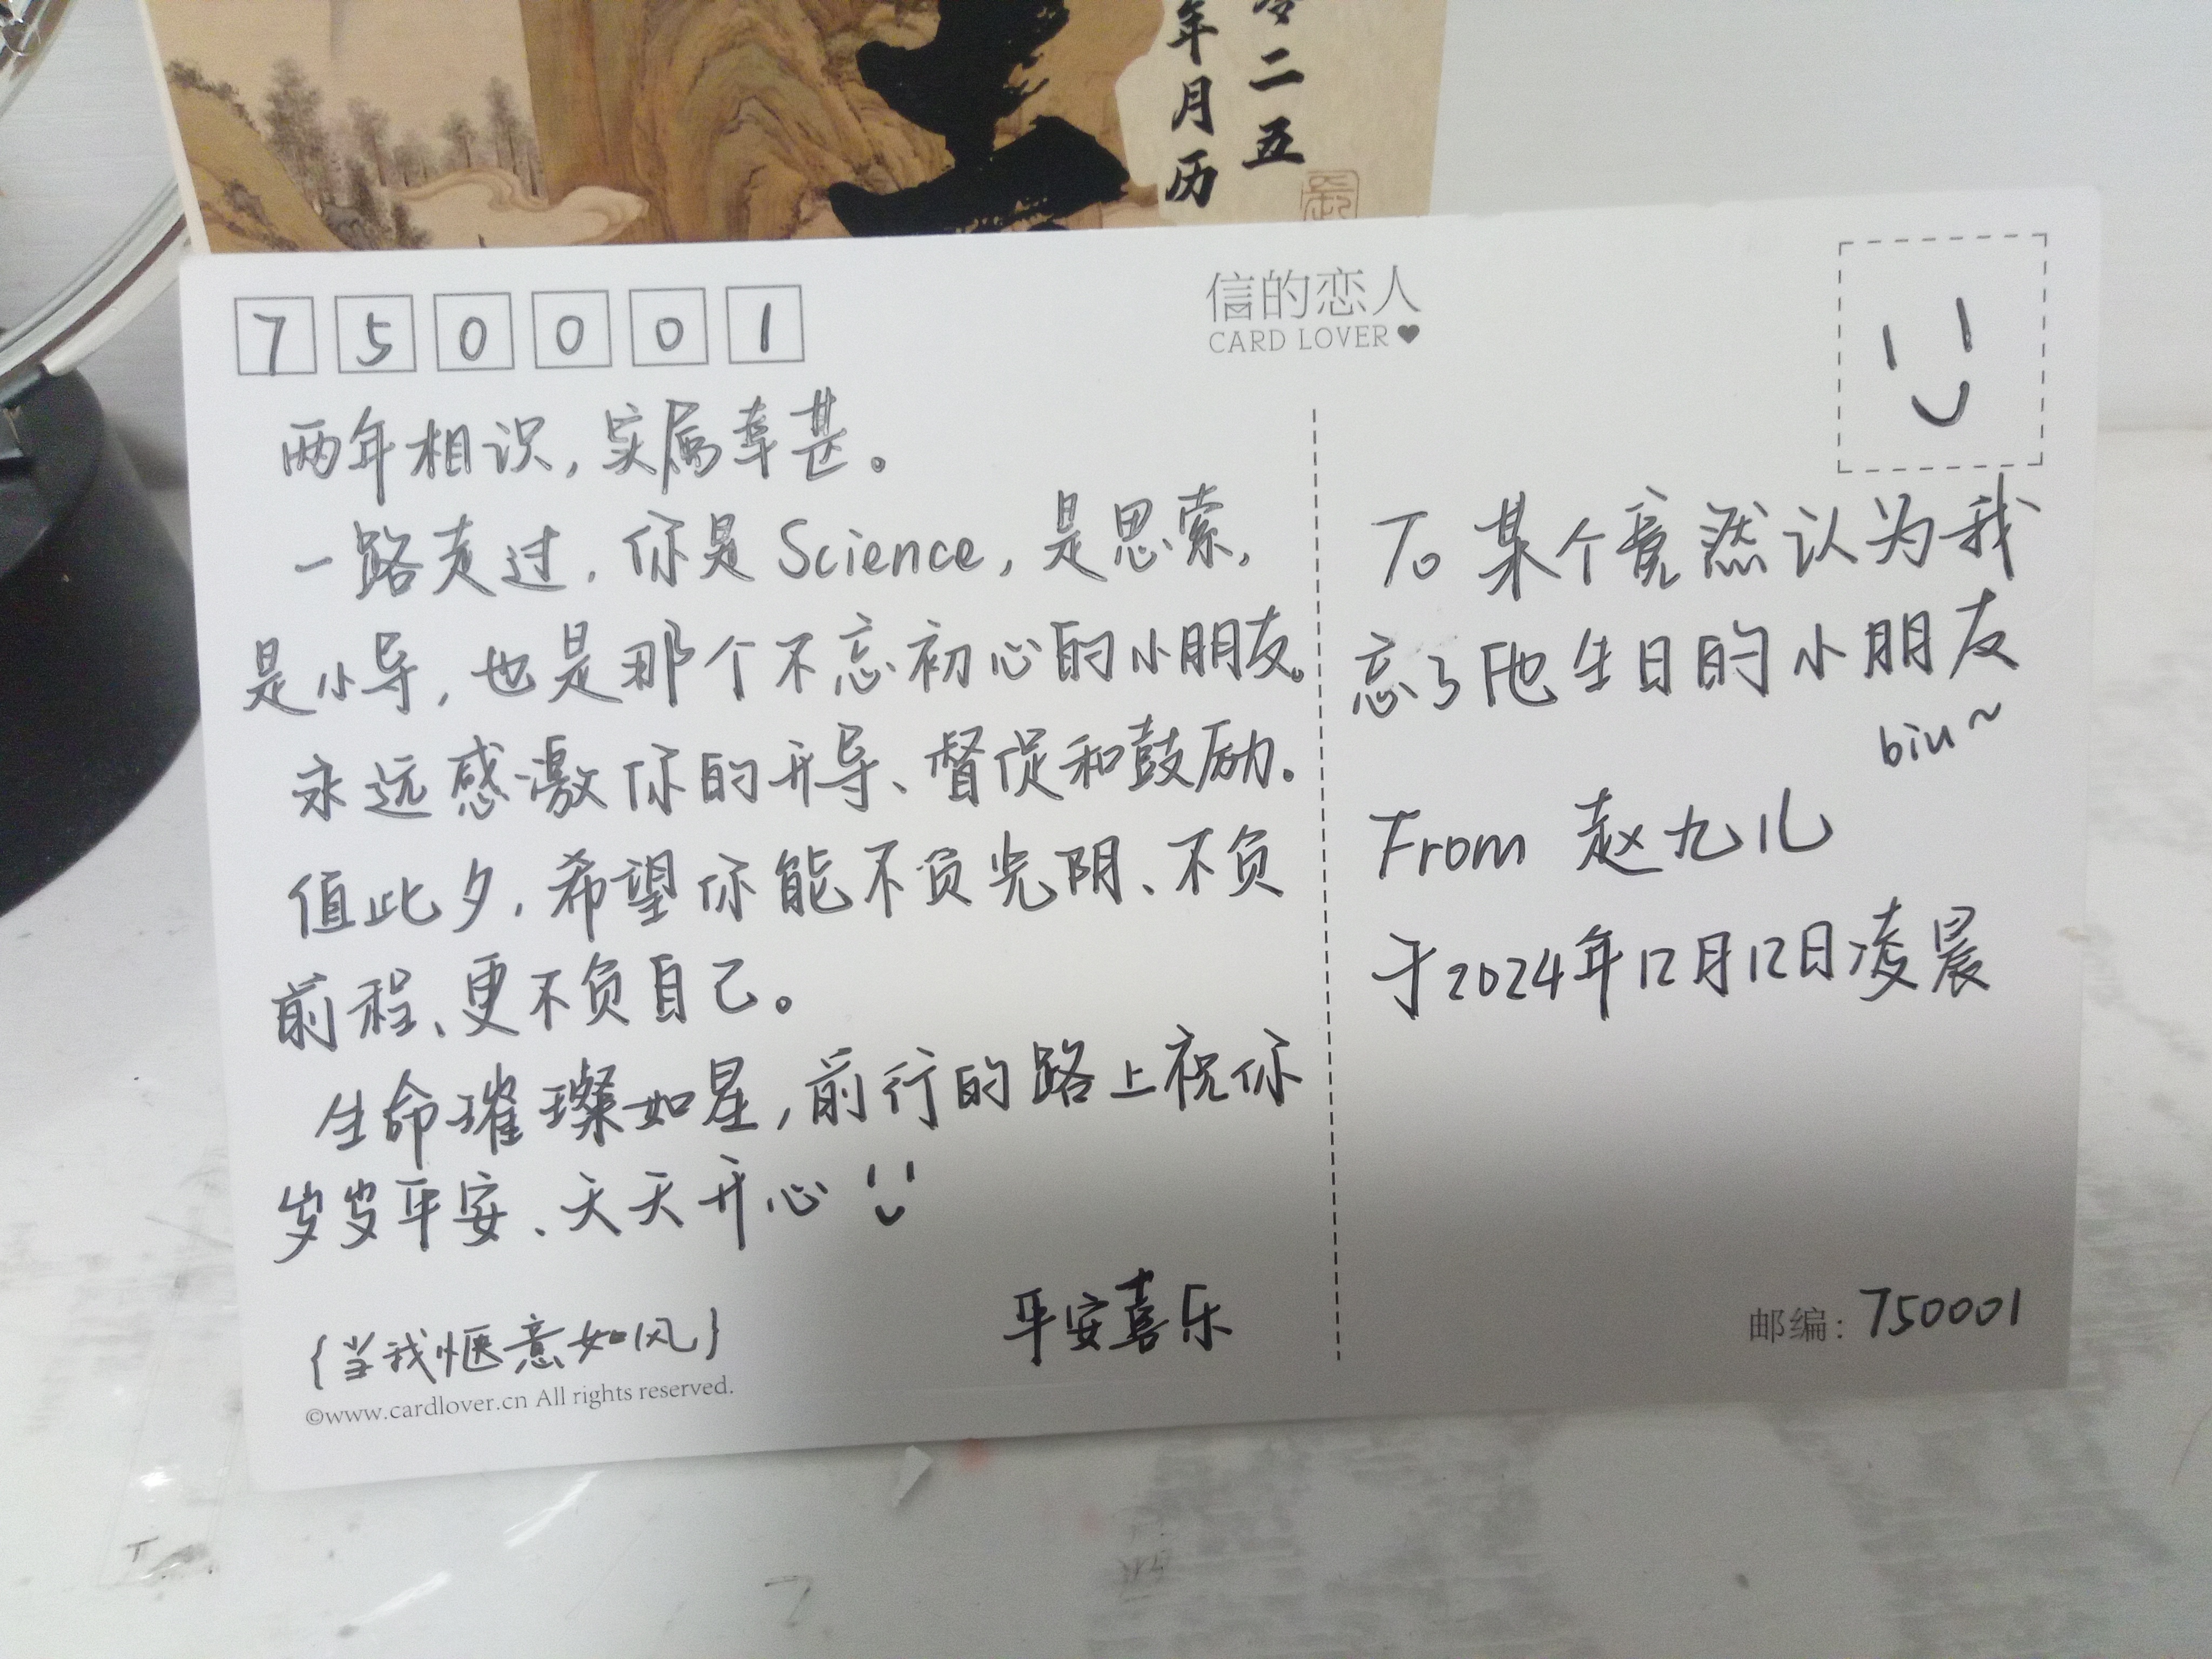 年月历
二五
750001
信的恋人
CARD LOVER
两年相识,实属幸甚。
一路走过,你是Science,是思索,
是小导,也是那个不忘初心的小朋友。
永远感激你的开导、督促和鼓励。
值此夕,希望你能不负光阴、不负
前程、更不负自己。
生命璀璨如星,前行的路上祝你
岁岁平安、天天开心
{当我惬意如风}
平安喜乐
©www.cardlover.cn All rights reserved.
To 某个竟然认为我
忘了他生日的小朋友
biu~
From 赵九儿
于2024年12月12日凌晨
邮编:750001